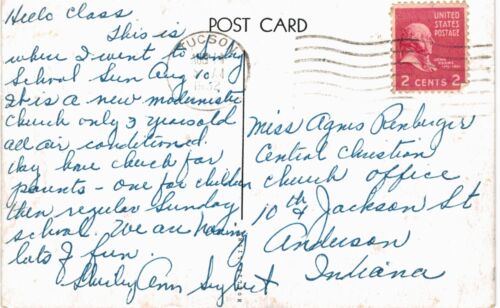 Hello Class
POST CARD
This is
where I went to Sunday
School Sun Aug 10.
It is a new modernistic
church only 3 years old
all air conditioned.
They have church for
parents - one for children
then regular Sunday
school. We are having
lots of fun.
Shirley Ann
TUCSON
UNITED STATES
POSTAGE
2 CENTS 2
Miss Agnes Renbarger
Central Christian
Church office
10th & Jackson St
Anderson
Indiana